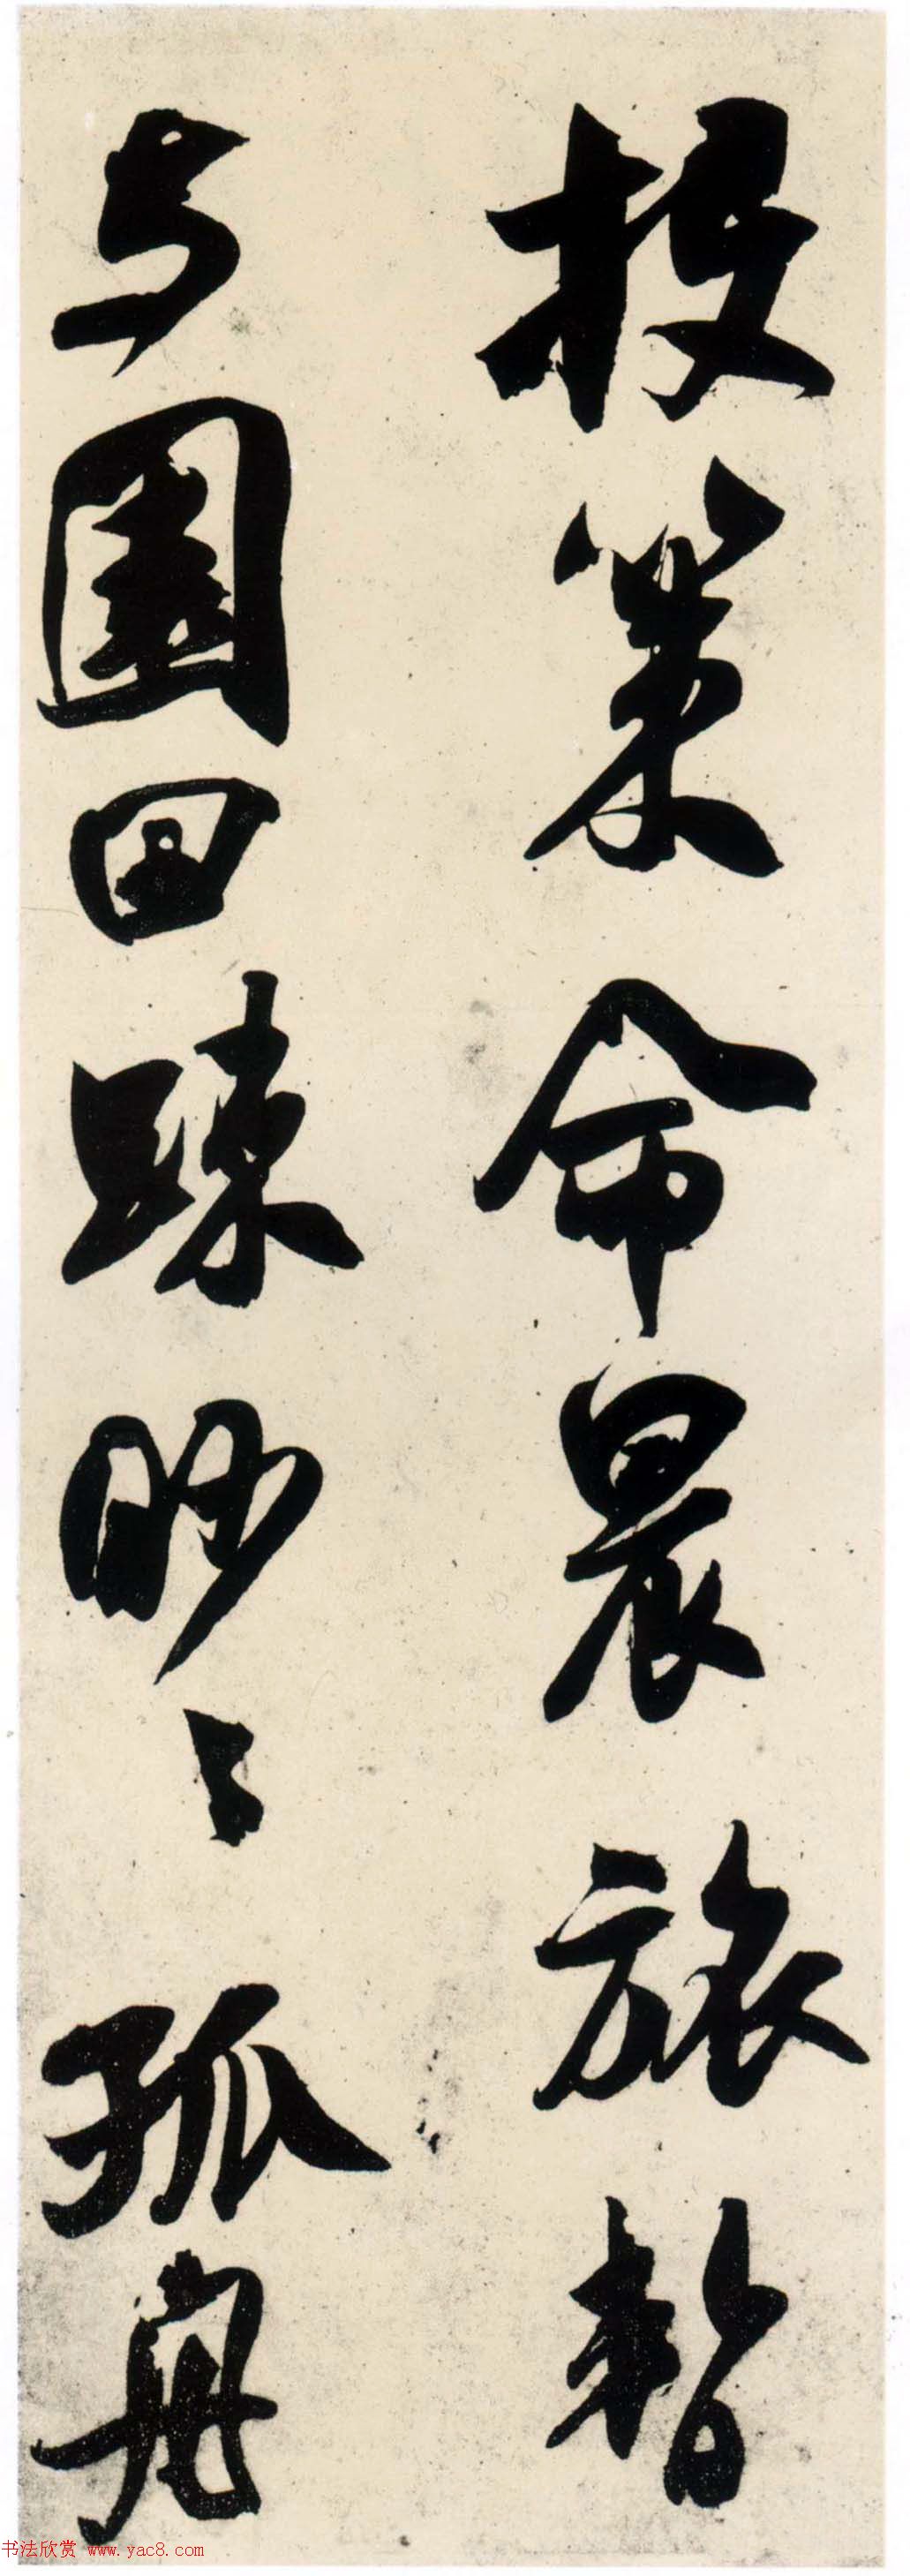 投策命晨旅暫
与園田疎眇〻孤舟
书法欣赏 www.yac8.com